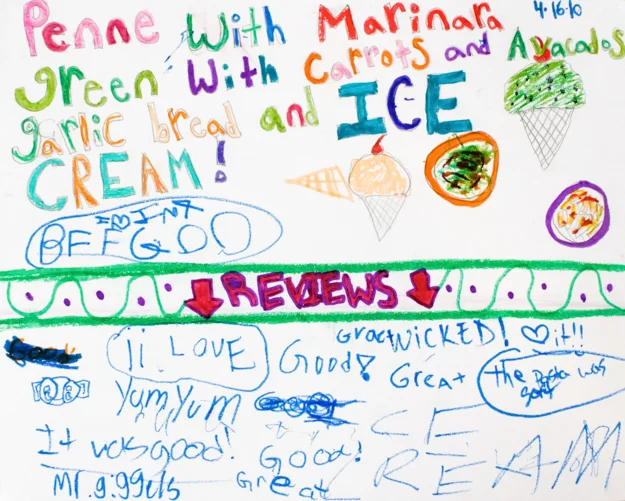 Penne with Marinara
4·16·10
green with carrots and Avacados
garlic bread and ICE
CREAM!
BFFGOO
REVIEWS
Good
ii LOVE
Good!
Great
WICKED!
it!!
Great
the Pasta was
soft
Yum Yum
It was good!
Good!
ICE
Mr.giggels
Great
CREAM